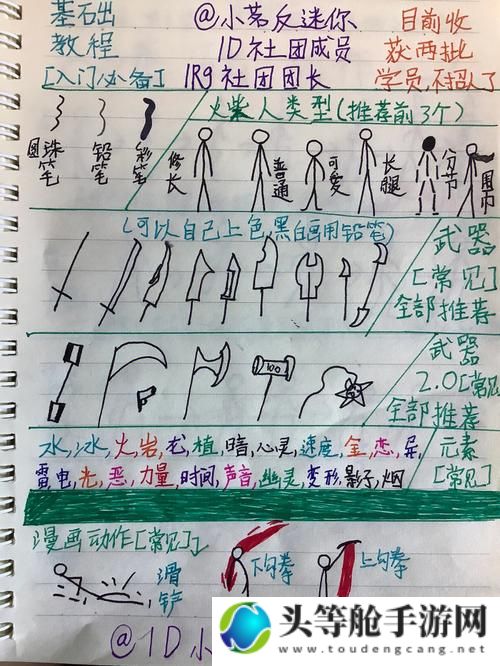 基石出
教程
[入门必备]
@小茗反迷你
1D社团成员
1R9社团团长
目前收
获两批
学员,不配队了
火柴人类型(推荐前3个)
圆珠笔
铅笔
彩笔
修长
普通
可爱
长腿
分节
围巾
(可以自己上色,黑白画用铅笔)
武器
[常见]
全部推荐
100
武器
2.0[常见
全部推荐
水,冰,火,岩,龙,植,暗,心灵,速度,金,恋,异,
雷电,光,恶,力量,时间,声音,幽灵,变形,影子,烟
元素
[常见]
漫画动作[常见]
滑铲
下勾拳
上勾拳
@1D小
头等舱手游网
www.toudengcang.net